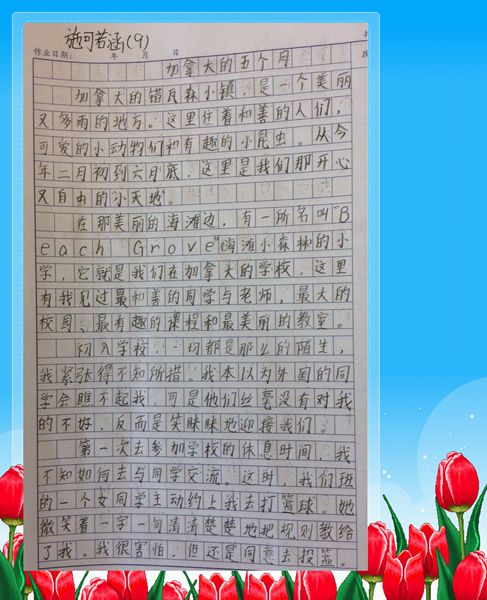 施可若涵(9)
作业日期： 年 月 日
加拿大的五个月
加拿大的错瓦森小镇，是一个美丽
又多雨的地方。这里住着和善的人们，
可爱的小动物们和有趣的小昆虫。从今
年二月初到六月底，这里是我们那开心
又自由的"小天地"。
在那美丽的海滩边，有一所名叫"B
each Grove"海滩小森林的小
学，它就是我们在加拿大的学校，这里
有我见过最和善的同学与老师，最大的
校园、最有趣的课程和最美丽的教室。
初入学校，一切都是那么的陌生，
我紧张得不知所措。我本以为外国的同
学会瞧不起我，可是他们丝毫没有对我
的不好，反而是笑眯眯地迎接我们。
第一次去参加学校的休息时间，我
不知如何去与同学交流。这时，我们班
的一个女同学主动约上我去打篮球。她
微笑着一字一句清清楚楚地把规则教给
了我。我很害怕，但还是同意去投篮。